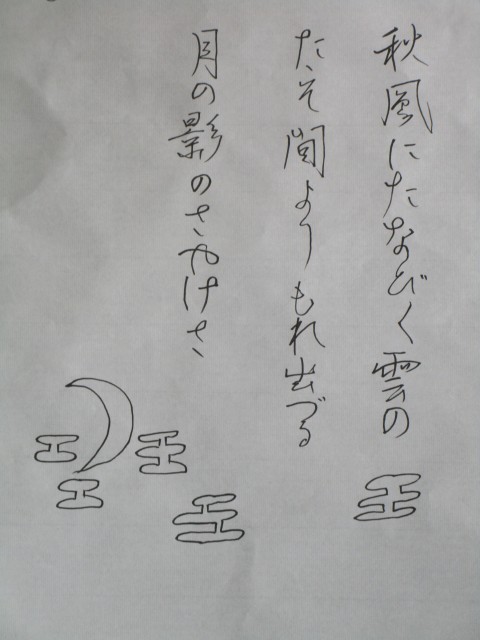 秋風にたなびく雲の
たえ間よりもれ出づる
月の影のさやけさ